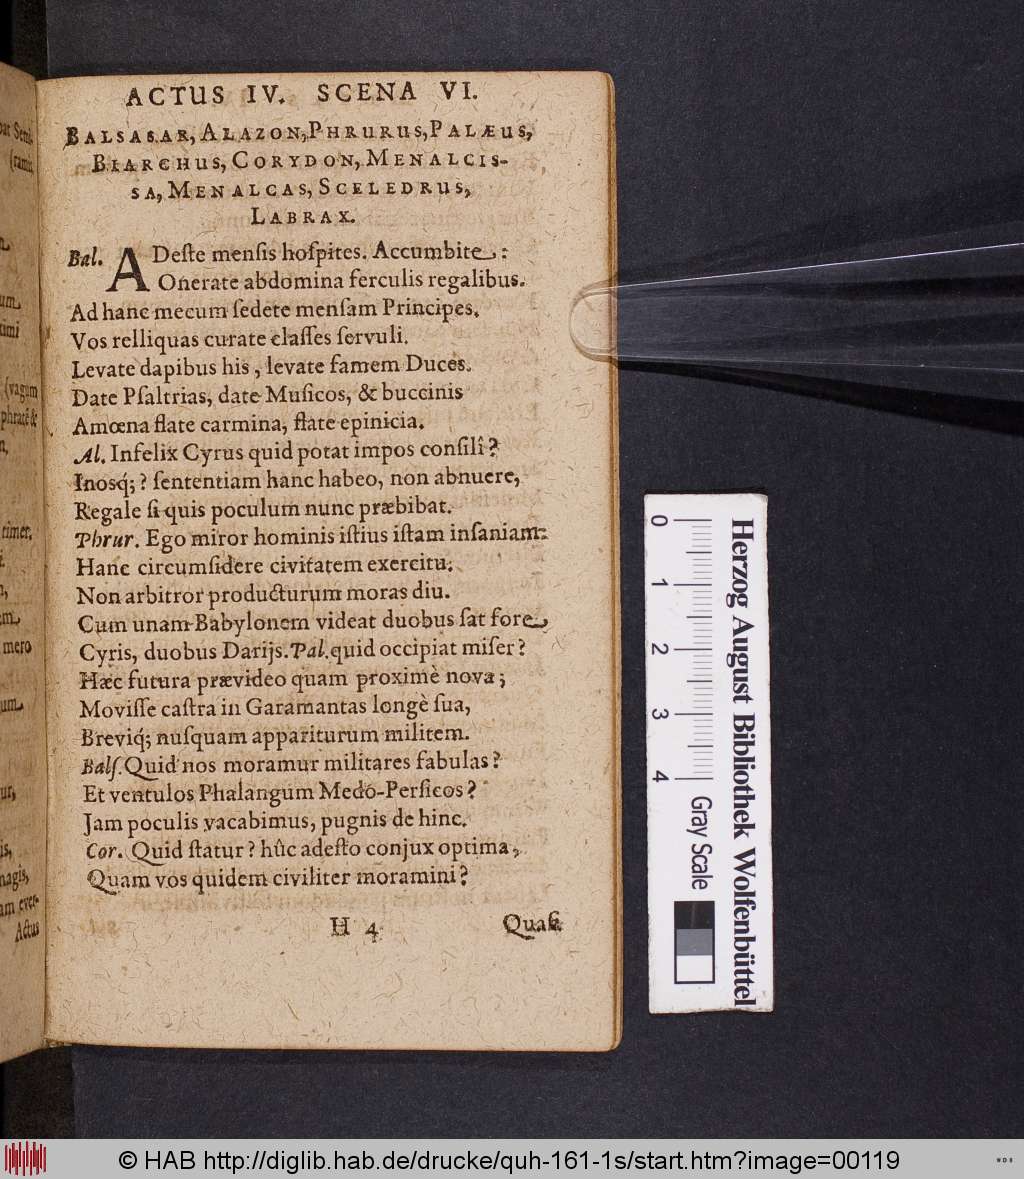 ACTUS IV. SCENA VI.
BALSASAR, ALAZON, PHRURUS, PALÆUS,
BIARCHUS, CORYDON, MENALCIS-
SA, MENALCAS, SCELEDRUS,
LABRAX.
Bal. ADeſte menſis hoſpites. Accumbite :
Onerate abdomina ferculis regalibus.
Ad hanc mecum ſedete menſam Principes.
Vos relliquas curate claſſes ſervuli.
Levate dapibus his, levate famem Duces.
Date Pſaltrias, date Muſicos, & buccinis
Amœna flate carmina, flate epinicia.
Al. Infelix Cyrus quid potat impos conſilî?
Inosq́; ? ſententiam hanc habeo, non abnuere,
Regale ſi quis poculum nunc præbibat.
Phrur. Ego miror hominis iſtius iſtam inſaniam:
Hanc circumſidere civitatem exercitu.
Non arbitror producturum moras diu.
Cum unam Babylonem videat duobus ſat fore
Cyris, duobus Darijs. Pal. quid occipiat miſer?
Hæc futura prævideo quam proximè nova;
Moviſſe caſtra in Garamantas longè ſua,
Breviq́; nuſquam appariturum militem.
Balſ. Quid nos moramur militares fabulas?
Et ventulos Phalangum Medo-Perſicos?
Jam poculis vacabimus, pugnis dehinc.
Cor. Quid ſtatur? hûc adeſto conjux optima,
Quam vos quidem civiliter moramini?
H 4
Quaſi
(vagum
timer,
mero
magis,
Actus
0 1 2 3 4
Herzog August Bibliothek Wolfenbüttel
Gray Scale
© HAB http://diglib.hab.de/drucke/quh-161-1s/start.htm?image=00119